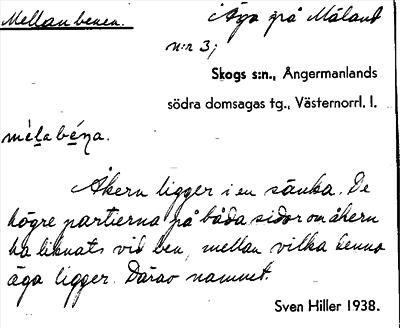 Mellanbenen.
Äga på Måland
n:r 3;
Skogs s:n., Ångermanlands
södra domsagas tg., Västernorrl. l.
mèlabéna.
Åkern ligger i en sänka. De
högre partierna på båda sidor om åkern
ha liknats vid ben, mellan vilka denna
äga ligger. Därav namnet.
Sven Hiller 1938.